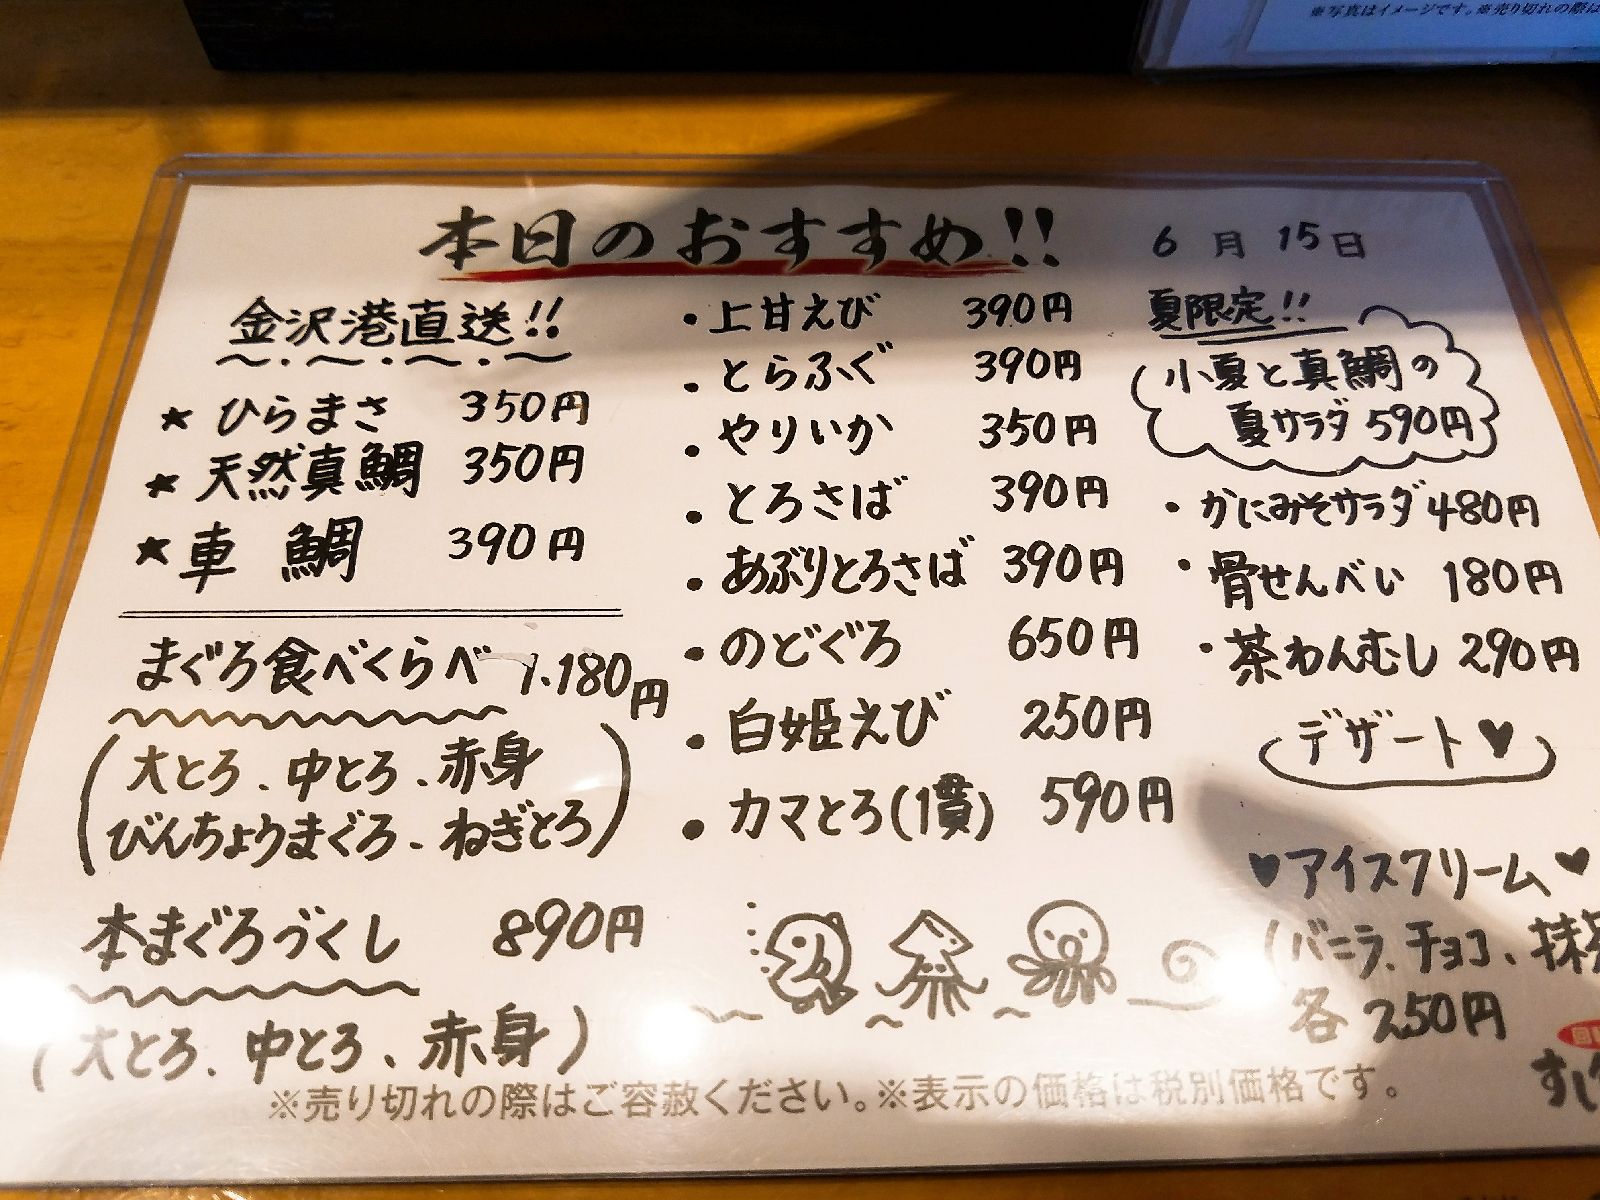 ※写真はイメージです。※売り切れの際は
本日のおすすめ!!
6月15日
金沢港直送!!
★ひらまさ 350円
★天然真鯛 350円
★車鯛 390円
まぐろ食べくらべ 1.180円
(大とろ、中とろ、赤身
びんちょうまぐろ、ねぎとろ)
本まぐろづくし 890円
(大とろ、中とろ、赤身)
・上甘えび 390円
・とらふぐ 390円
・やりいか 350円
・とろさば 390円
・あぶりとろさば 390円
・のどぐろ 650円
・白姫えび 250円
・カマとろ(1貫) 590円
夏限定!!
小夏と真鯛の
夏サラダ 590円
・かにみそサラダ 480円
・骨せんべい 180円
・茶わんむし 290円
デザート♥
♥アイスクリーム♥
(バニラ、チョコ、抹
各250円
※売り切れの際はご容赦ください。※表示の価格は税別価格です。